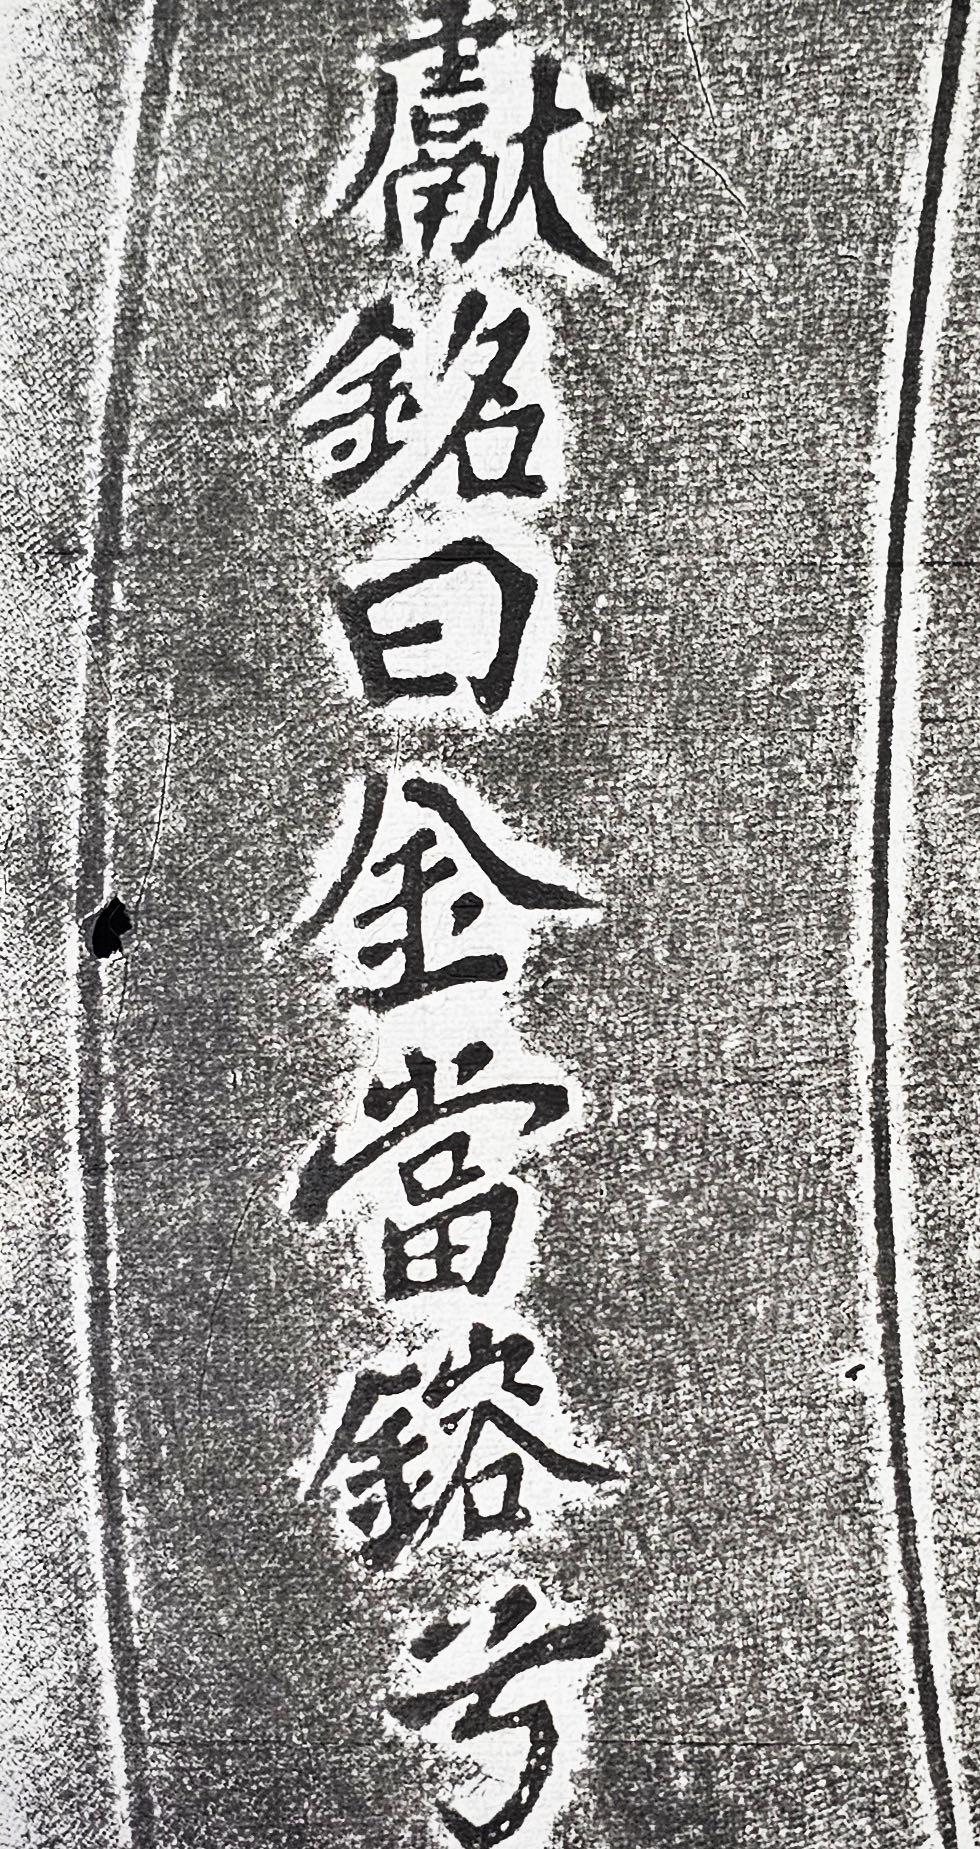 獻銘曰金當鎔兮